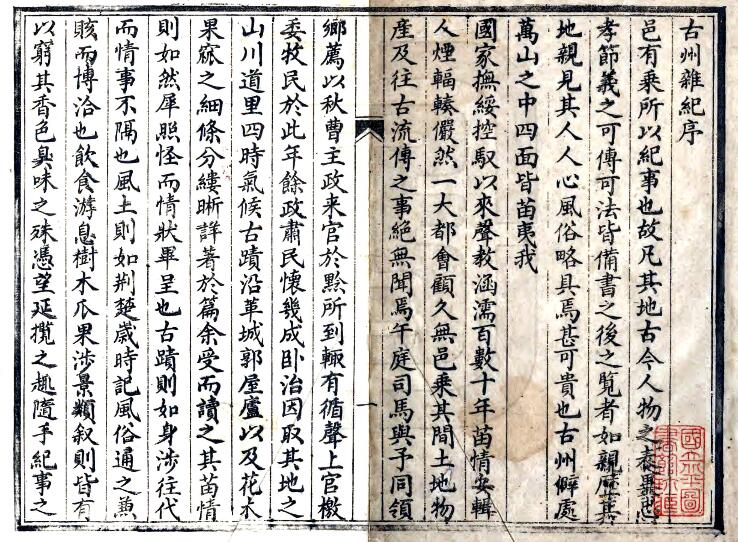 古州雜紀序
邑有乘所以紀事也故凡其地古今人物之表異忠
孝節義之可傳可法皆備書之後之覽者如親歷其
地親見其人人心風俗略具焉甚可貴也古州僻處
萬山之中四面皆苗夷我
國家撫綏控馭以來聲教涵濡百數十年苗情安輯
人煙輻輳儼然一大都會顧久無邑乘其間土地物
產及往古流傳之事絕無聞焉午庭司馬與予同領
一
鄉薦以秋曹主政来官於黔所到輒有循聲上官檄
委牧民於此年餘政肅民懷幾成卧治因取其地之
山川道里四時氣候古蹟沿革城郭屋廬以及花木
果窊之細條分縷晰詳著於篇余受而讀之其苗情
則如然犀照怪而情狀畢呈也古蹟則如身涉往代
而情事不隔也風土則如荆楚歲時記風俗通之兼
賅而博洽也飲食游息樹木瓜果涉景類叙則皆有
以窮其香色臭味之殊憑望延攬之趣隨手紀事之